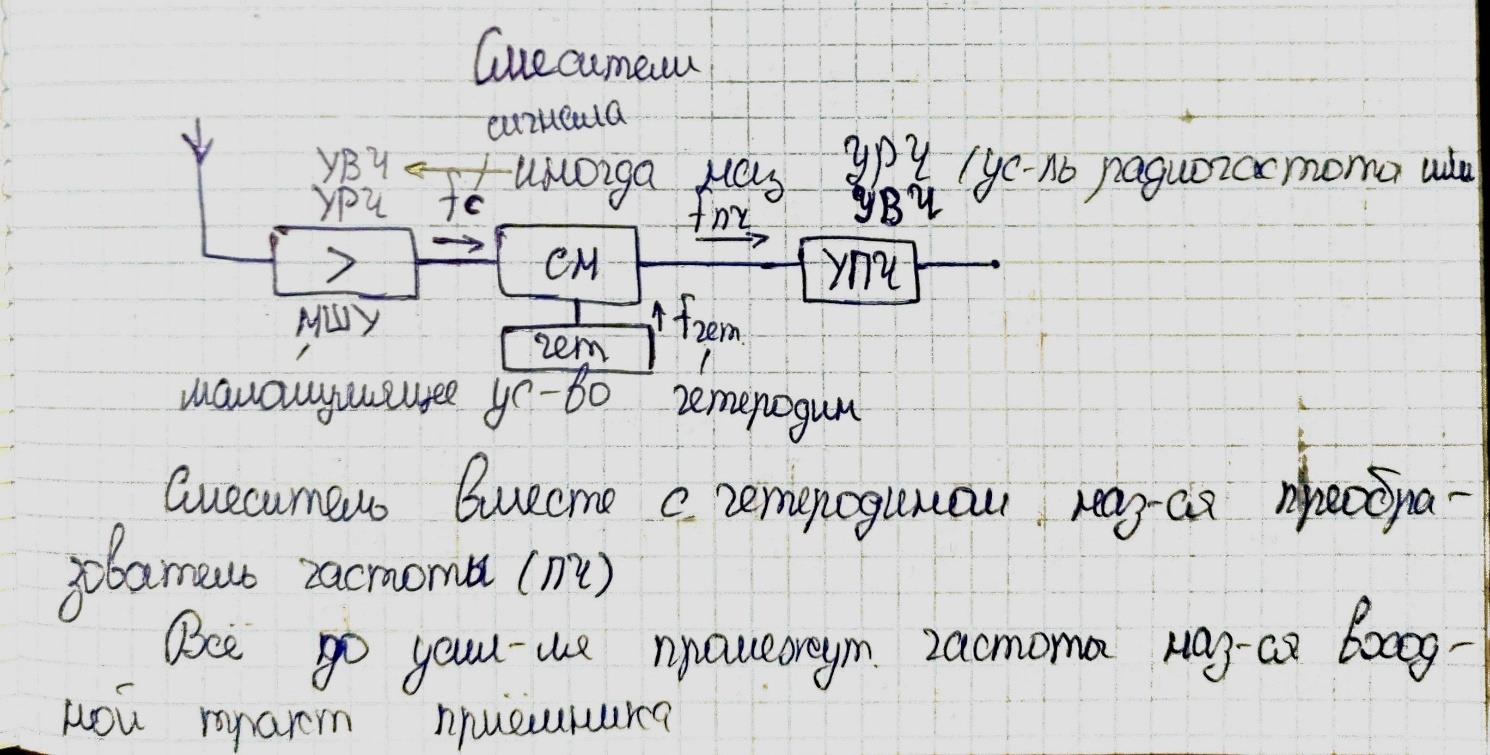 Смесители
сигнала
УВЧ иногда наз УРЧ (ус-ль радиочастота или
УРЧ fс fпч УВЧ
> СМ УПЧ
МШУ гет fгет.
малошумящее ус-во гетеродин
Смеситель вместе с гетеродином наз-ся преобра-
зователь частоты (ПЧ)
Всё до усил-ля промежут. частоты наз-ся вход-
ной тракт приёмника